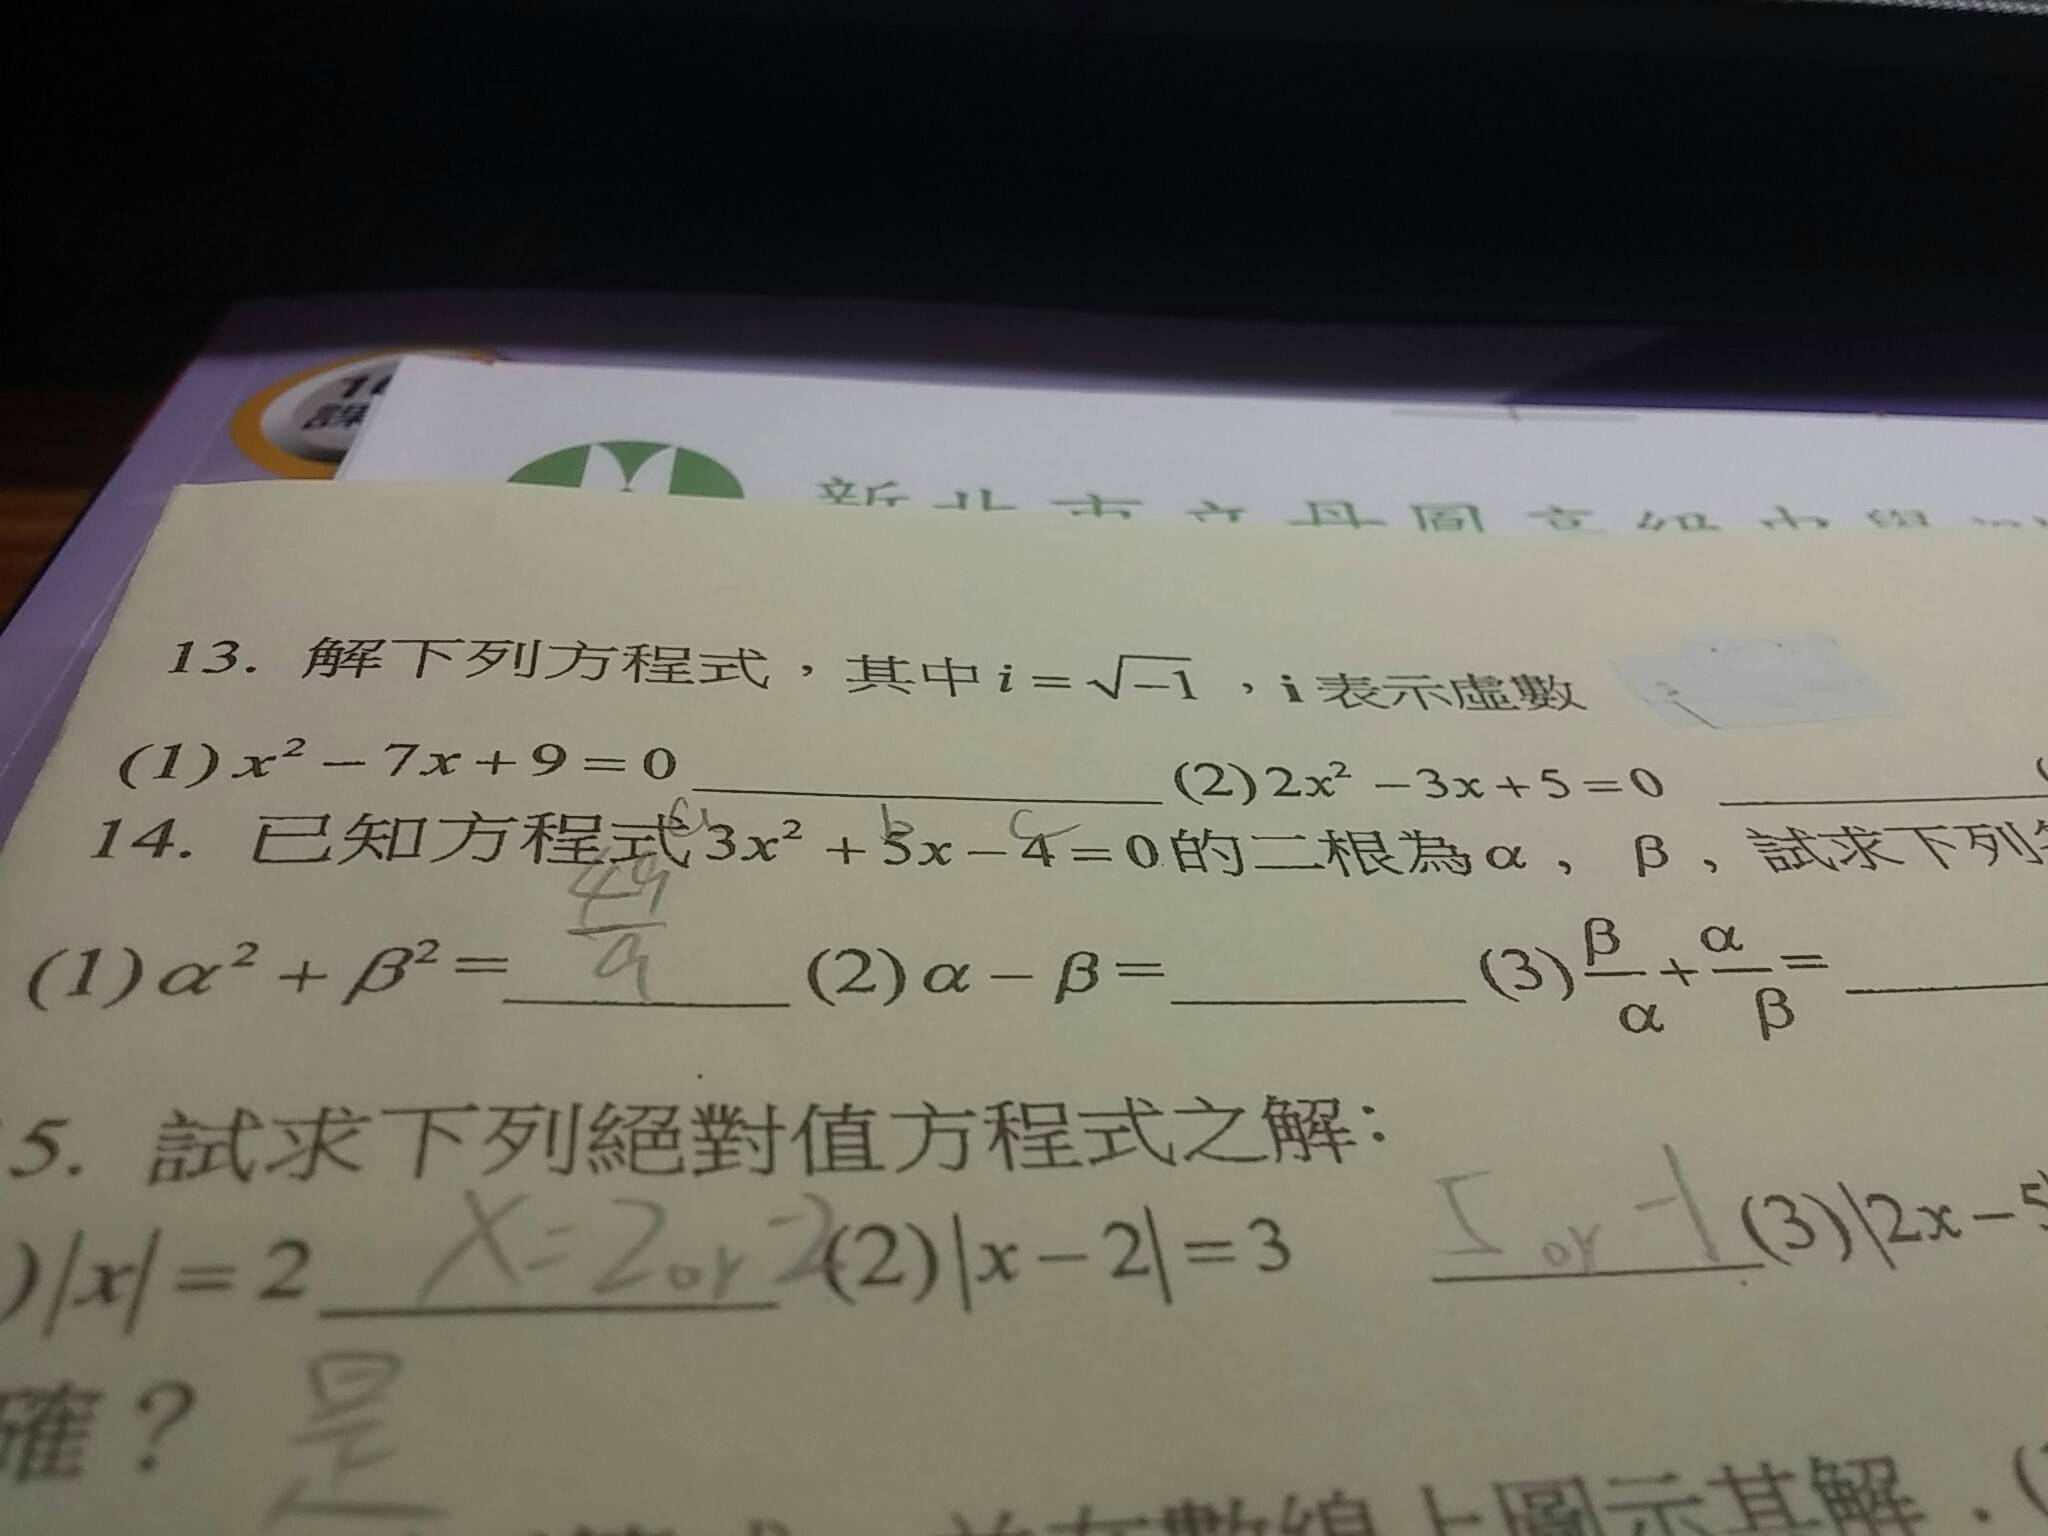 新北市立丹鳳高級中學
13. 解下列方程式，其中 i = √-1 ，i 表示虛數
(1) x² - 7x + 9 = 0 ________ (2) 2x² - 3x + 5 = 0 ________
a b c
14. 已知方程式 3x² + 5x - 4 = 0 的二根為 α， β，試求下列
(1) α² + β² = 49/9 (2) α - β = ________ (3) β/α + α/β = ________
5. 試求下列絕對值方程式之解:
)|x| = 2 X=2 or -2 (2)|x - 2| = 3 5 or -1 (3)|2x - 5
確？ 是